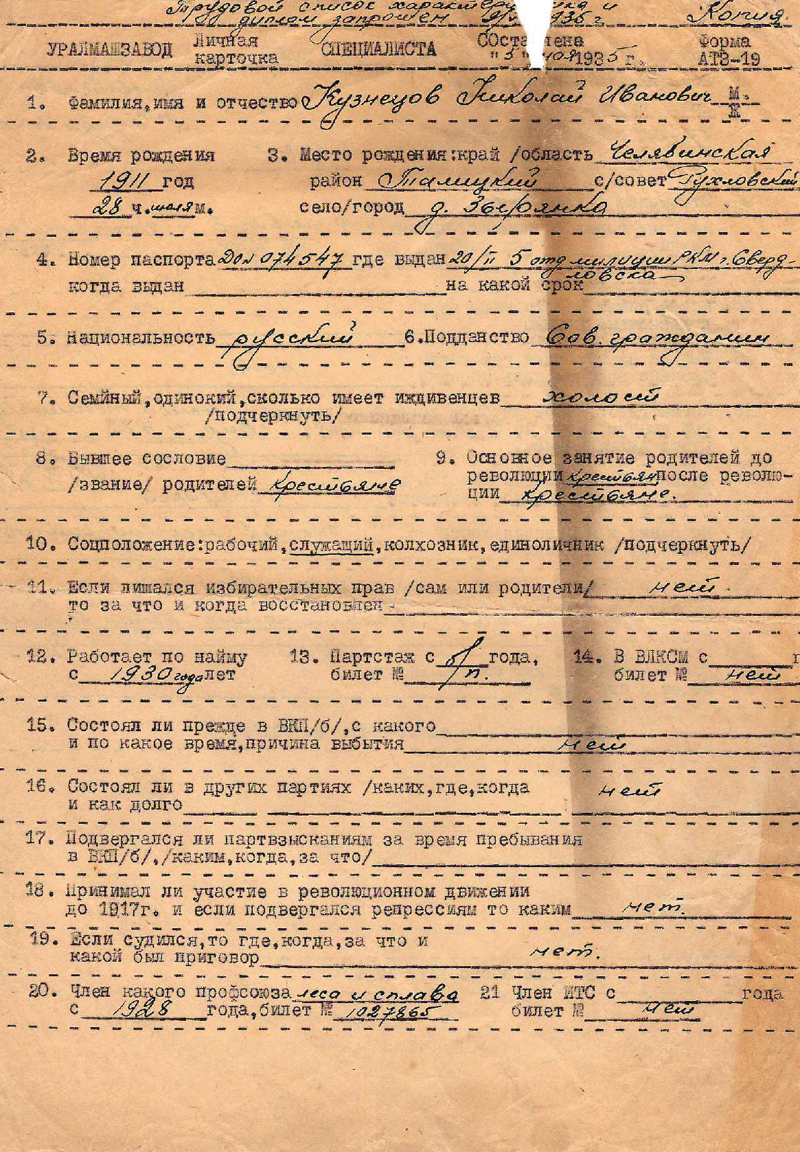 Трудовой список характеристика и
диплом запрошен 1935 г Копия.
УРАЛМАШЗАВОД Личная карточка СПЕЦИАЛИСТА Форма АТЗ-19
"5" 1935 г.
1. Фамилия, имя и отчество Кузнецов Николай Иванович М. Ж
2. Время рождения 3. Место рождения:край /область Челябинская
1911 год район Талицкий с/совет Рухловский
28 ч. июля м. село/город д. Зырянка
4. Номер паспорта 074547 где выдан 20/II 5 отд милиции РКМ г. Сверд-
ловска
когда выдан на какой срок
5. Национальность русский 6.Подданство Сов. гражданин
7. Семейный,одинокий,сколько имеет иждивенцев холост
/подчеркнуть/
8. Бывшее сословие 9. Основное занятие родителей до
/звание/ родителей крестьяне революции крестьян после револю-
ции крестьяне.
10. Соцположение:рабочий,служащий,колхозник,единоличник /подчеркнуть/
11. Если лишался избирательных прав /сам или родители/ нет.
то за что и когда восстановлен -
12. Работает по найму 13. Партстаж с б/ года, 14. В ВЛКСМ с г
с 1930 года лет билет № п. билет № нет
15. Состоял ли прежде в ВКП/б/,с какого
и по какое время,причина выбытия нет
16. Состоял ли в других партиях /каких,где,когда нет
и как долго
17. Подвергался ли партвзысканиям за время пребывания
в ВКП/б/,/каким,когда,за что/
18. Принимал ли участие в революционном движении
до 1917г. и если подвергался репрессиям то каким нет.
19. Если судился,то где,когда,за что и
какой был приговор нет.
20. Член какого профсоюза леса и сплава 21 Член ИТС с года
с 1928 года,билет № 1027865 билет № нет